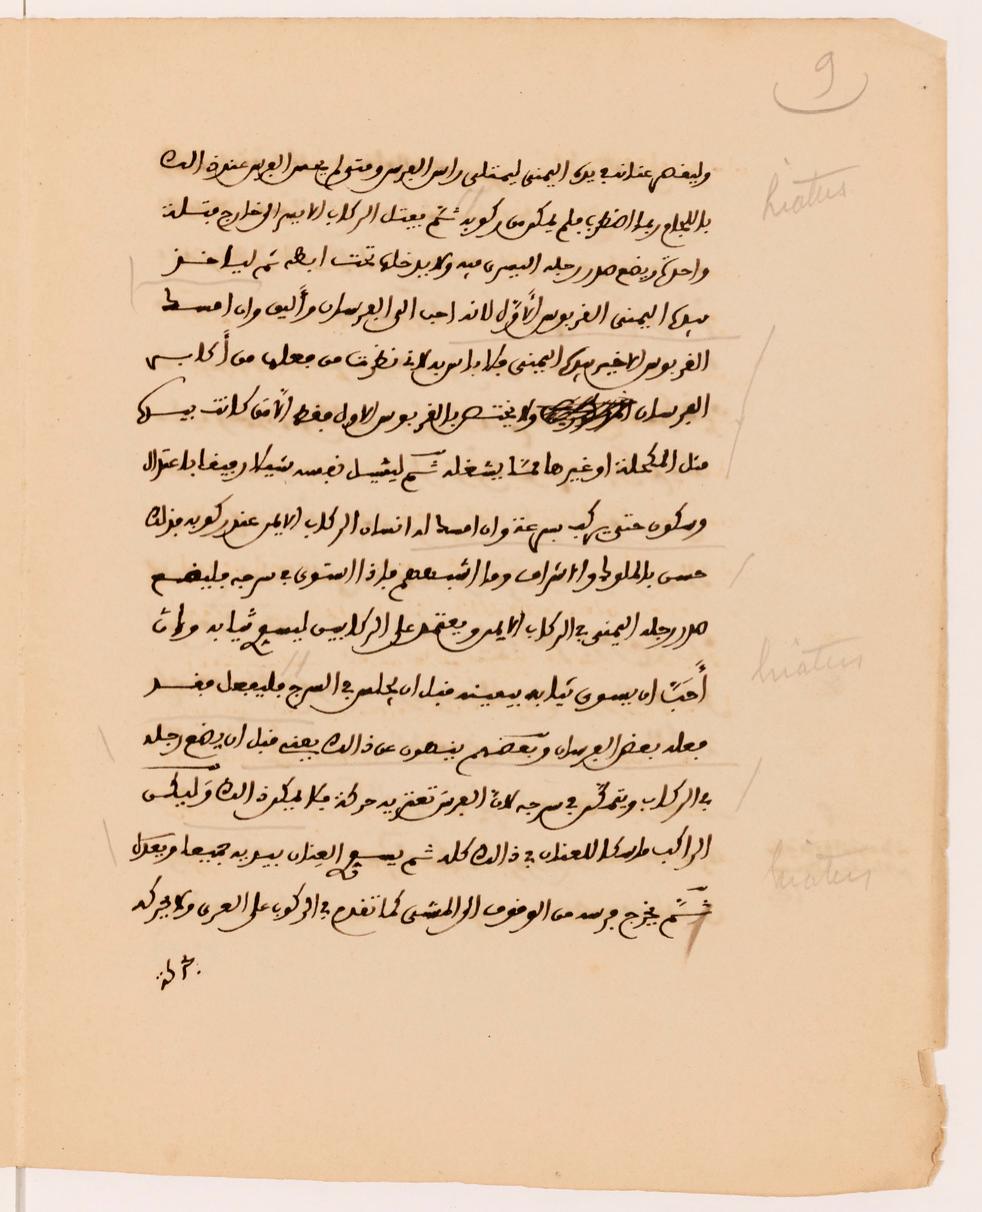 9
hiatus
وليقصر عنانه في يده اليمنى ليمتلى راس الفرس ومتى لم يقصر الفرس عند ذالك
باللجام ربما اضطرب فلم يمكن من ركوبه ثم يفتل الركاب الايسر الى خارج فتلة
واحدة ويضع صدر رجله اليسرى فيه ولا يدخلها تحت ابطه ثم لياخذ
بيده اليمنى القربوس الأوّل لانه احب الى الفرسان وأليق وان امسك
القربوس الاخير بيده اليمنى فلا باس به لانى نظرت من فعلها من أكابر
الفرسان ولا يختص بالقربوس الاول فقط الا متى كانت بيده
مثل المكحلة او غيرها ممّا يشغله ثم ليشيل نفسه شيلا رفيقا باعتدال
وسكون حتى يركب بسرعة وان امسك له انسان الركاب الايمن عند ركوبه فذلك
حسن بالملوك والاشراف وما اشبههم فاذا استوى في سرجه فليضع
صدر رجله اليمنى في الركاب الايمن ويعتمد على الركابين ليسوي ثيابه وان
أحَبّ ان يسوى ثيابه بيمينه قبل ان يجلس في السرج فليفعل فقد
فعله بعض الفرسان وبعضهم ينهون عن ذالك يعني قبل ان يضع رجله
في الركاب ويتمكن في سرجه لانّ الفرس تعتريه حركة فلا يمكن ذالك وليكن
hiatus
الراكب ماسكا للعنان في ذالك كله ثم يسوي العنان بيديه جميعا ويعدل
hiatus
ثم يخرج فرسه من الوقوف الى المشى كما تقدم في الركوب على العرى ولا يحركه